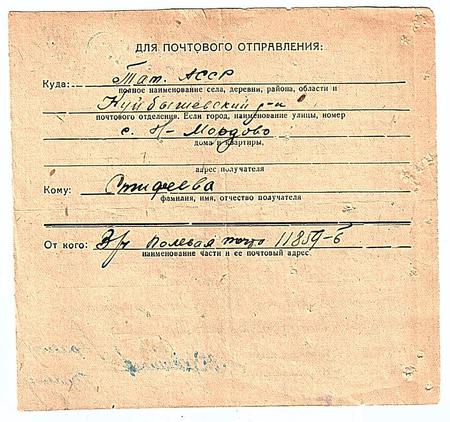 ДЛЯ ПОЧТОВОГО ОТПРАВЛЕНИЯ:
Куда: Тат. АССР
полное наименование села, деревни, района, области и
Куйбышевский р-н
почтового отделения. Если город, наименование улицы, номер
с. Н-Мордово
дома и квартиры,
адрес получателя
Кому:
фамилия, имя, отчество получателя
От кого: Полевая 11859-б
наименование части и ее почтовый адрес